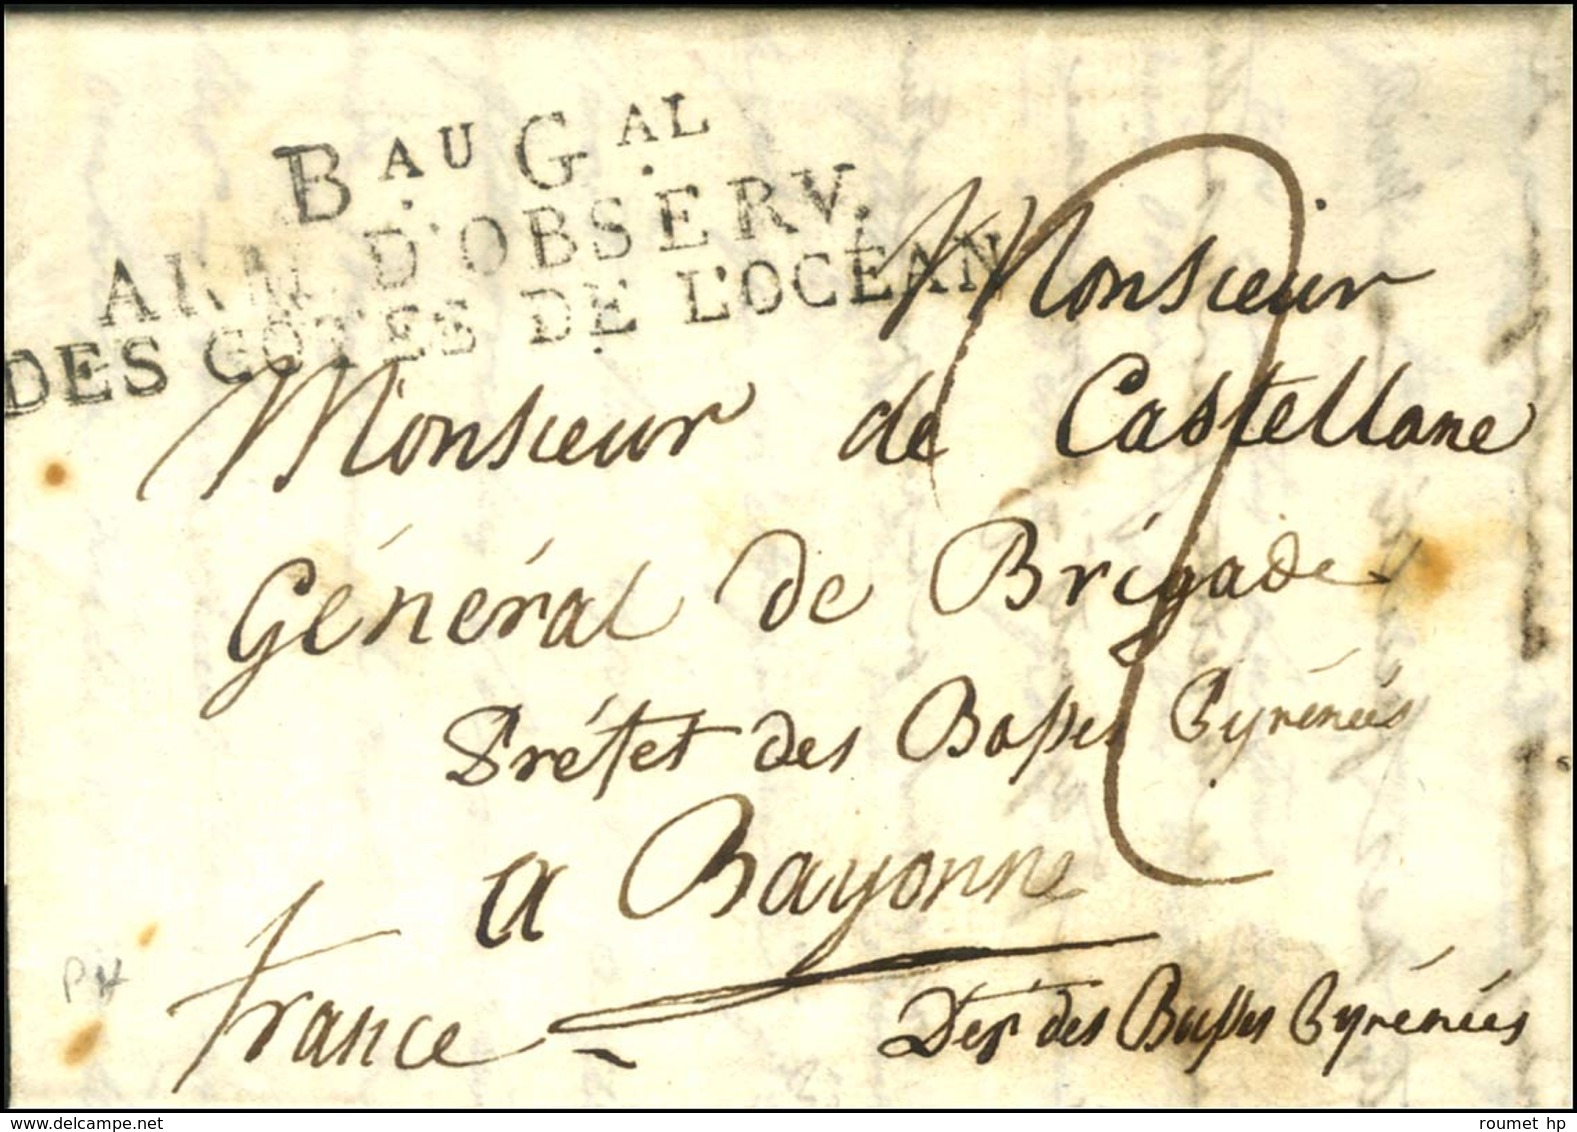 B.AU G.AL
ARM. D'OBSERV.
DES CÔTES DE L'OCÉAN
Monsieur
Monsieur de Castellane
Général de Brigade
Préfet des Basses Pyrénées
a Bayonne
france
Dep.t des Basses Pyrénées
roumet hp